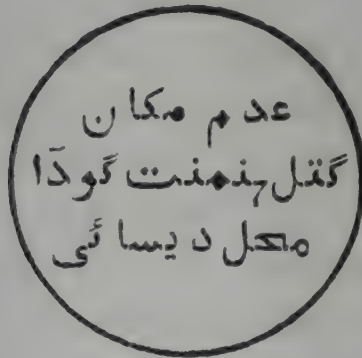 عدم مکان
گتل ہنمنت گودَا
محل دیسائی